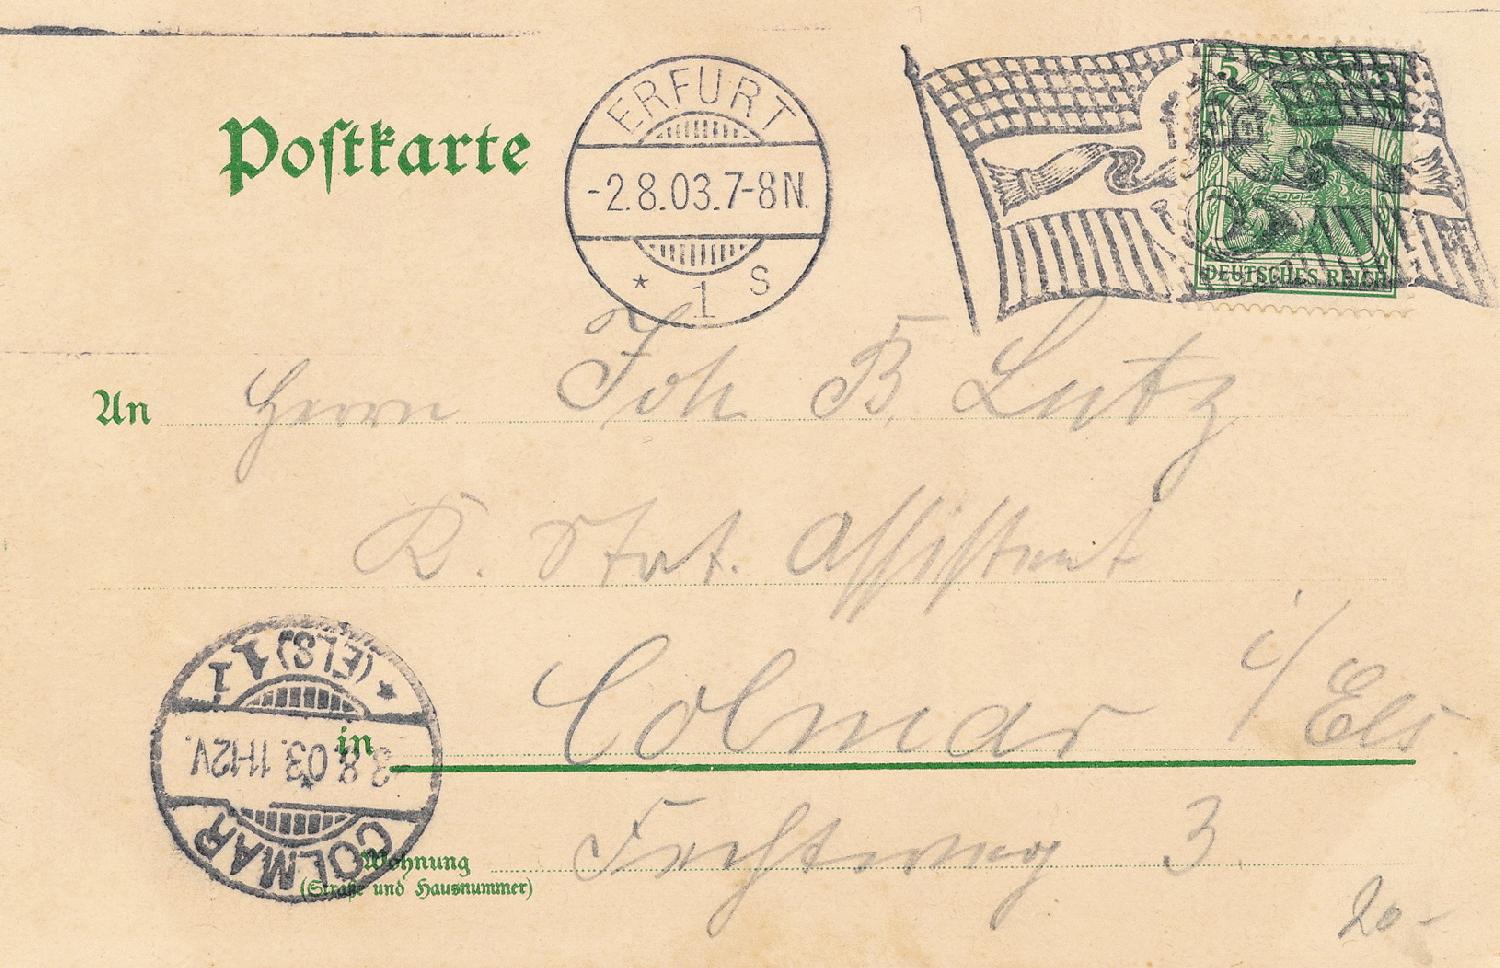 Postkarte
ERFURT
-2.8.03.7-8N.
* 1 S
5 5
DEUTSCHES REICH
An Herrn Joh B. Lutz
K. Stat. Assistent
Colmar i/Els.
in
COLMAR
3.8.03.11-12V.
* (ELS) 1 i
Wohnung
(Straße und Hausnummer)
Fechtweg 3.
20-